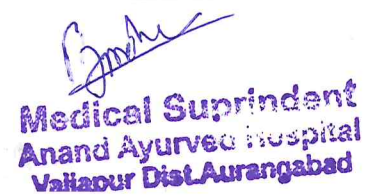 Medical Suprindent
Anand Ayurved Hospital
Vaijapur Dist.Aurangabad